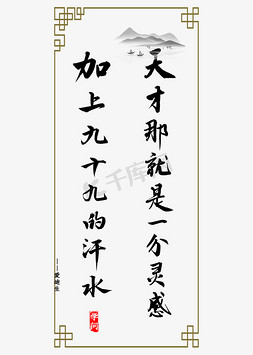 天才那就是一分灵感
加上九十九的汗水
——爱迪生
学问
千库网